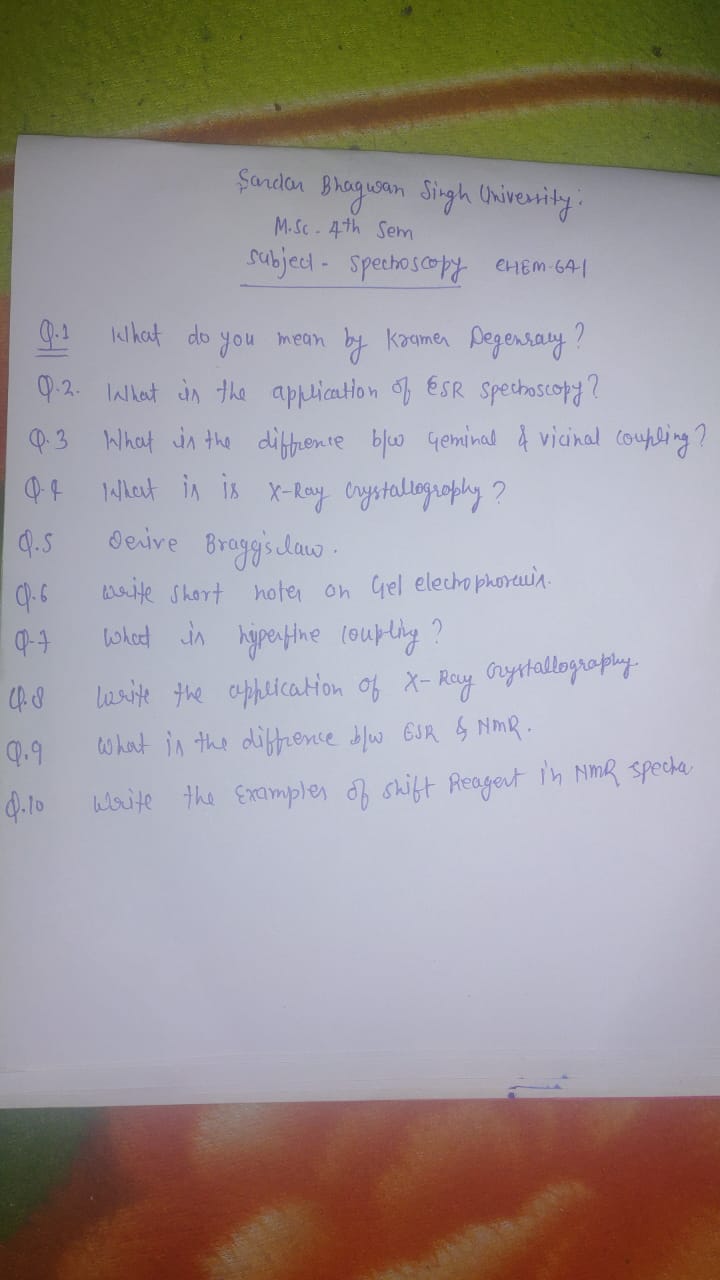 Sardar Bhagwan Singh University:
M.Sc. 4th Sem
Subject - Spectroscopy CHEM-641
Q.1 What do you mean by Kramer Degensacy?
Q.2. What is the application of ESR Spectroscopy?
Q.3 What is the diffrence b/w Geminal & vicinal coupling?
Q.4 What is is X-Ray Crystallography?
Q.5 Derive Bragg's law.
Q.6 Write short notes on Gel electrophoresis.
Q.7 What is hyperfine coupling?
Q.8 Write the application of X-Ray Crystallography.
Q.9 What is the diffrence b/w ESR & NMR.
Q.10 Write the Examples of shift Reagent in NMR spectra.